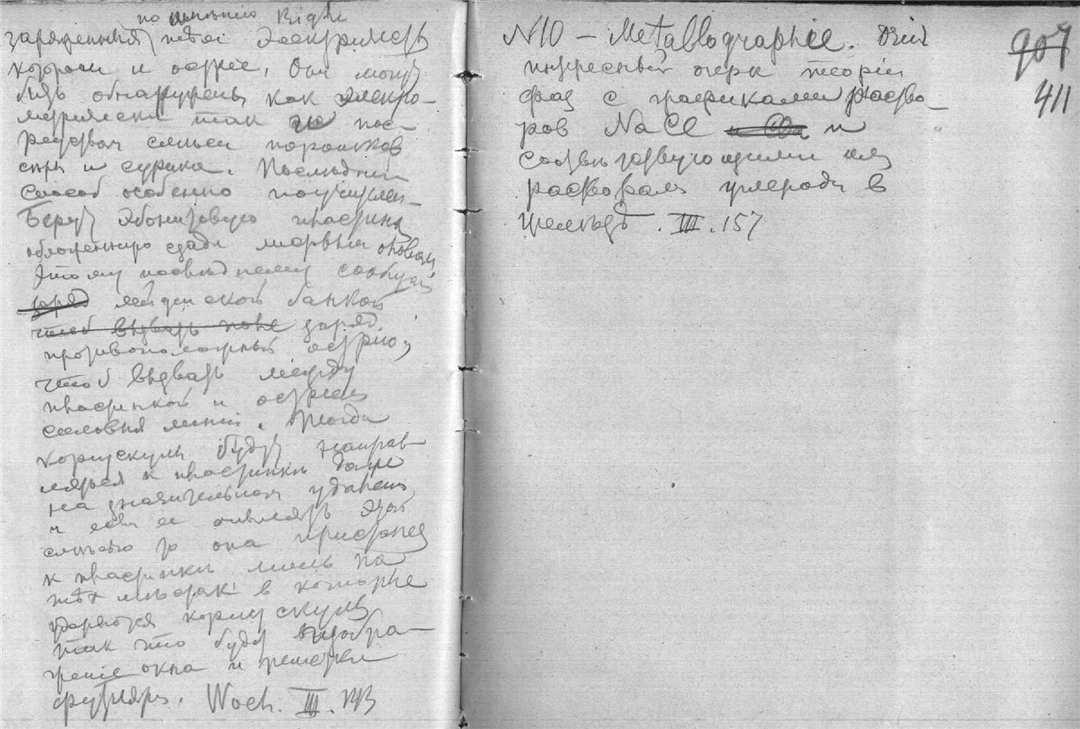 по мнѣнію Righi
заряженныя
короли и острее. Они могут
быть обнаружены как электро-
метрически так и пос-
редством смеси порошков
серы и сурика. Последний
способ особенно поучителен
Берут эбонитовую пластинку
обложенную сзади
Этому последнему сообщ
заряд лейденской банкой
чтоб вызвать заряд
противоположный острию,
чтоб вызвать между
пластинкой и острием
силовыя линіи. Тогда
корпускулы будут направ-
ляться к пластинке даже
на значительном
и если ее опылять этой
смесью то она пристанет
к пластинке лишь на
тѣх мѣстах в которые
ударяются корпускулы
так что будет изобра-
женіе окна и решетки
футляра. Woch. III.
N10 – Metallographie. Дан
интересный очерк теоріи
фаз с графиками раство-
ров NaCl и
соответствующими им
растворам углерода в
желѣзѣ. III. 157
907
411